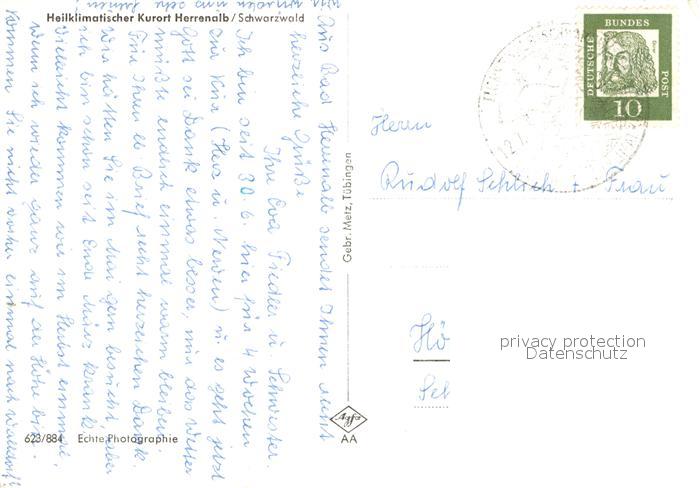 Heilklimatischer Kurort Herrenalb/Schwarzwald
Aus Bad Herrenalb sendet Ihnen recht
herzliche Grüße
Ihre Eva Fiedler u. Schwester.
Ich bin seit 30.6. hier für 4 Wochen
zur Kur (Herz u. Nerven) u. es geht jetzt
Gott sei Dank etwas besser, nur das Wetter
müßte endlich einmal warm bleiben.
Für Ihren lb. Brief recht herzlichen Dank.
Wir hätten Sie im Mai gern besucht, aber
ich bin schon seit Ende März krank.
Vielleicht kommen wir im Herbst einmal,
wenn ich wieder ganz auf der Höhe bin.
Kommen Sie nicht vorher einmal nach
623/884 Echte Photographie
Gebr. Metz, Tübingen
Agfa
AA
DEUTSCHE
BUNDES
POST
Dürer
10
Herrn
Rudolf Schlich + Frau
Hö
Sch
privacy protection
Datenschutz